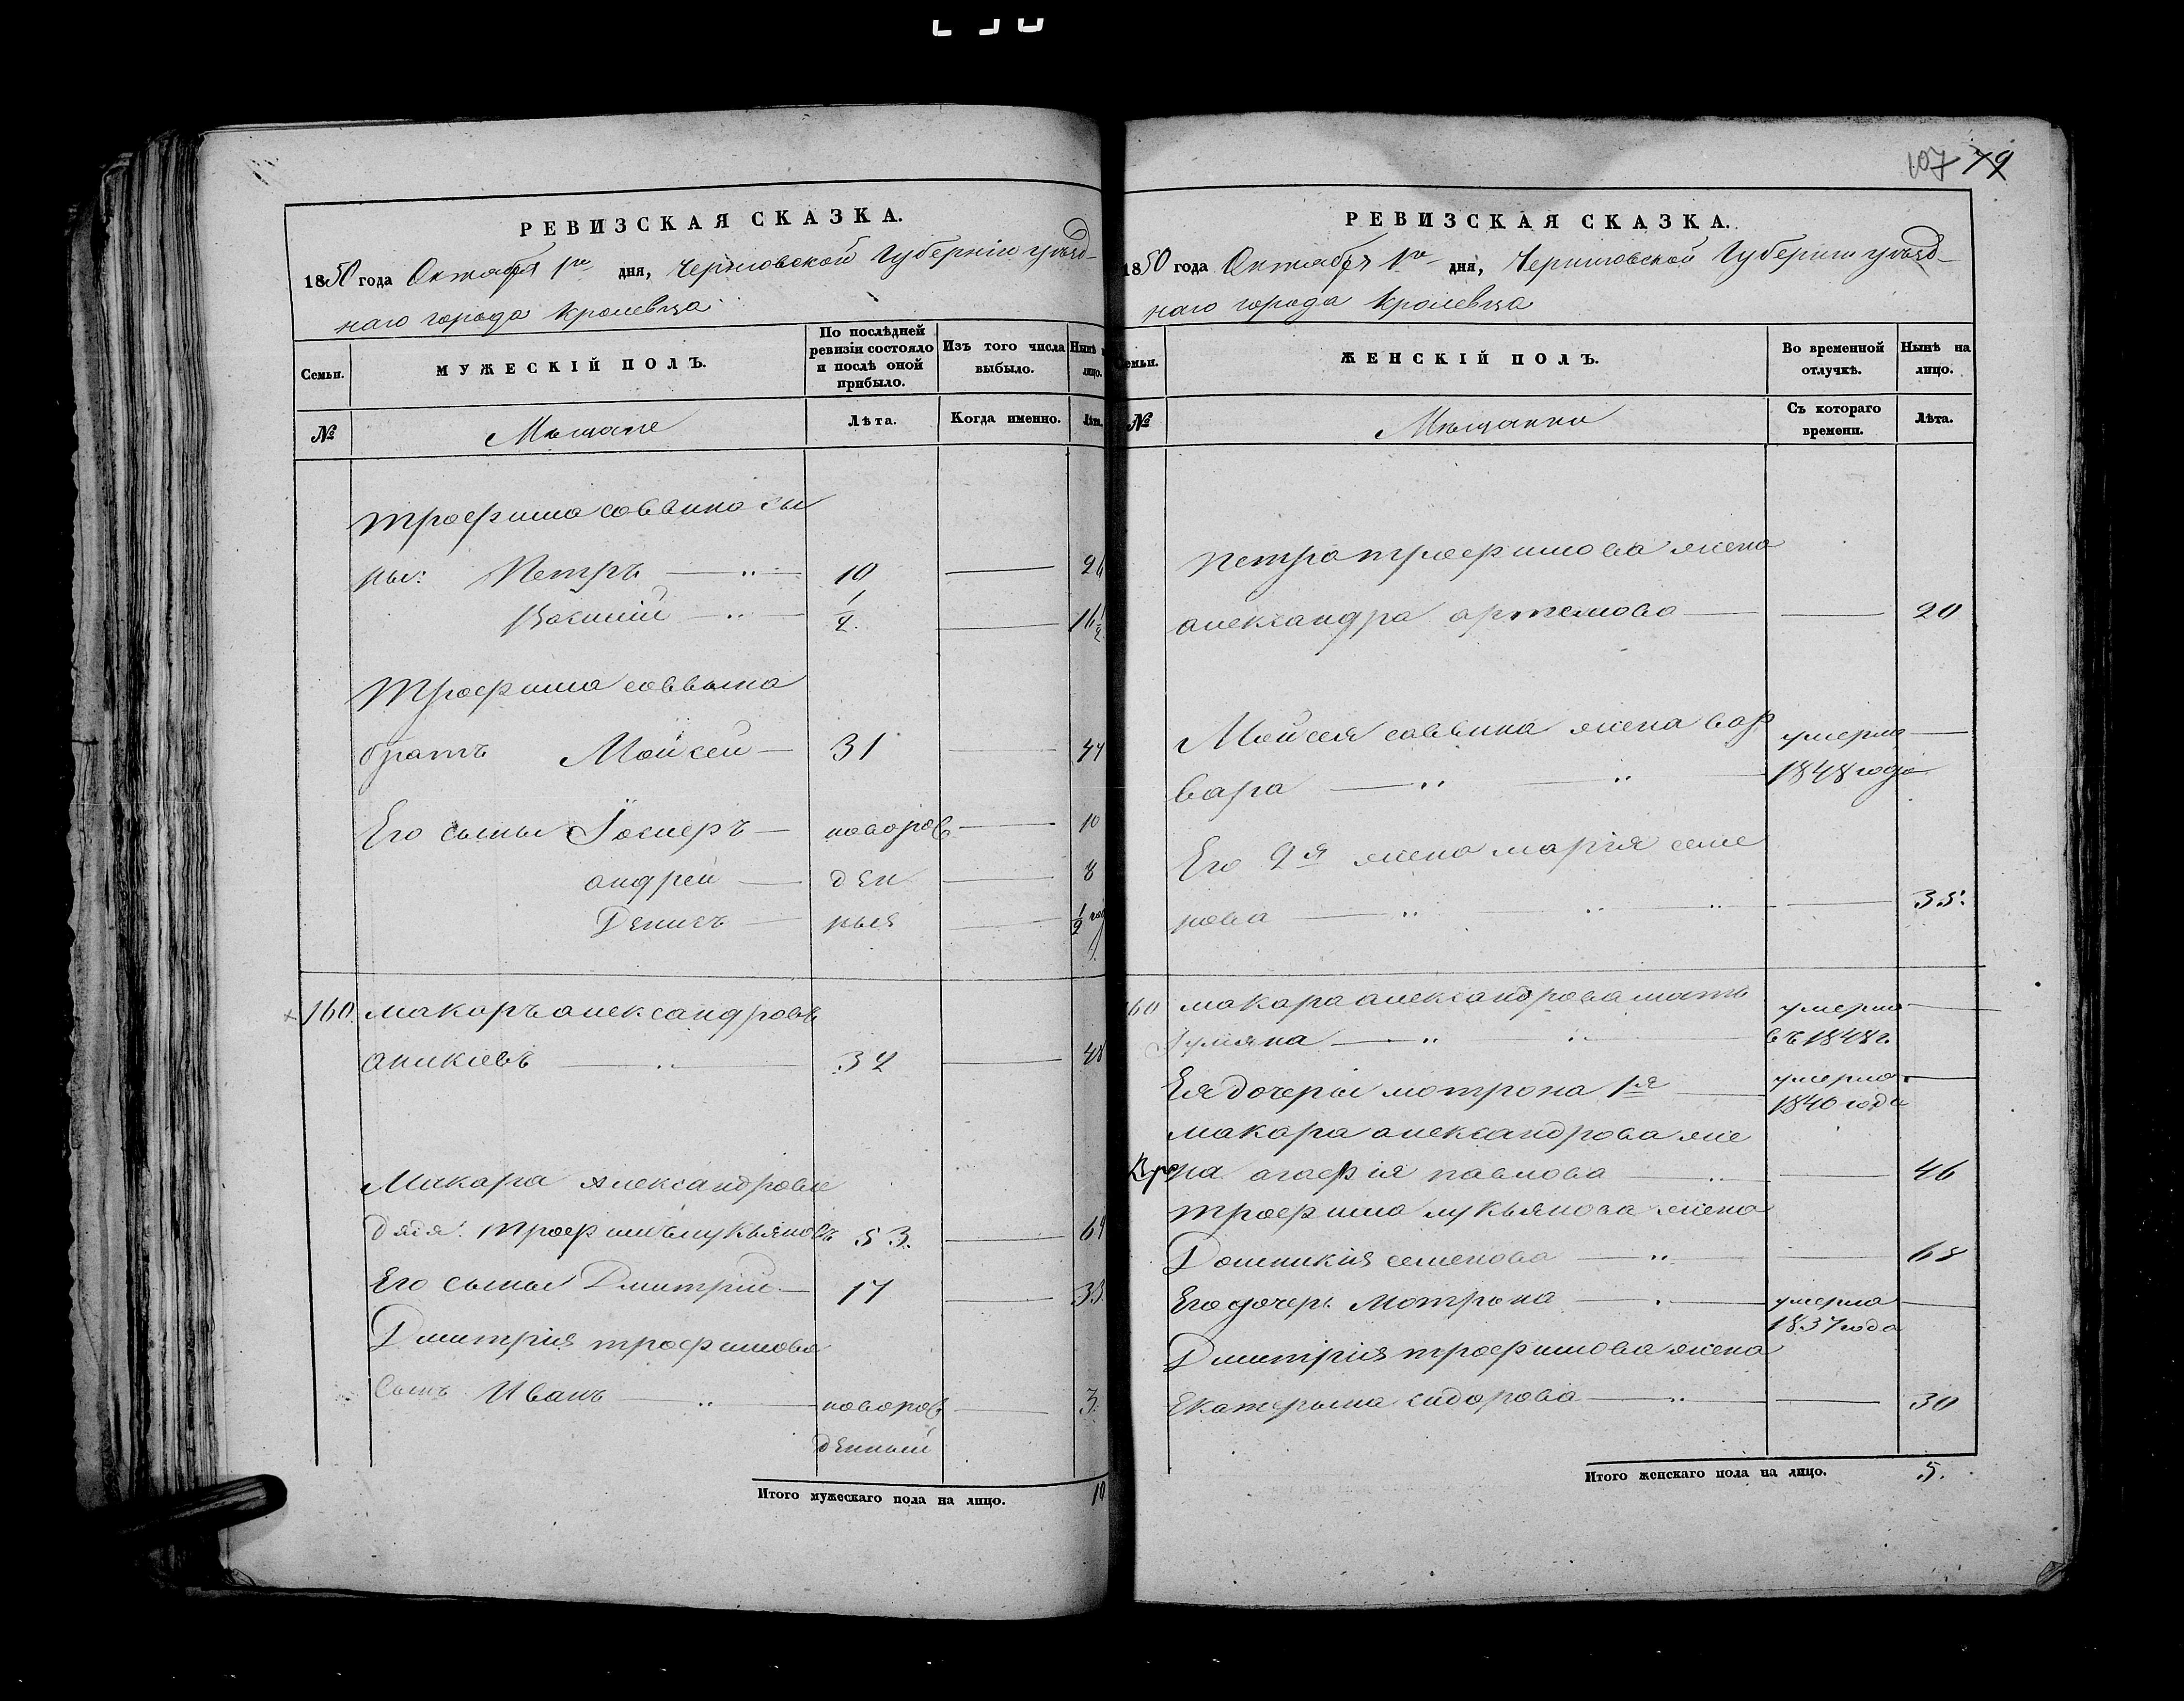 107 79
РЕВИЗСКАЯ СКАЗКА.
1850 года Октября 1го дня, Черниговской Губерніи уѣзд-
наго города Кролевца
Семьи.
МУЖЕСКІЙ ПОЛЪ.
По послѣдней ревизіи состояло и послѣ оной прибыло.
Изъ того числа выбыло.
Нынѣ на лицо.
№
Мещане
Лѣта.
Когда именно.
Лѣта.
Трофима Саввина сы
ны: Петръ — 10 — 26
Василій — 1/2 — 16 1/2
Трофима Саввина
братъ Мойсей — 31 — 47
Его сыны Іосиѳъ — новорож — 10
андрей — ден — 8
Денисъ — ныя — 1/2 год
160 Макаръ александровъ
аникіевъ — 32 — 48
Макара Александрова
дядя: Трофимъ лукьяновъ 53. — 69
Его сыны Дмитрій — 17 — 33
Дмитрія трофимова
Сынъ Иванъ — новорож — 3.
денный
Итого мужескаго пола на лицо. 10
РЕВИЗСКАЯ СКАЗКА.
1850 года Октября 1го дня, Черниговской Губерніи уѣзд-
наго города Кролевца
Семьи.
ЖЕНСКІЙ ПОЛЪ.
Во временной отлучкѣ.
Нынѣ на лицо.
№
Мещанки
Съ котораго времени.
Лѣта.
Петра трофимова жена
александра артемова — 20
Мойсея саввина жена вар умерла —
вара — 1848 года
Его 2я жена марія сиде
рова — 35.
160 макара александрова мать умерла —
Іуліяна — въ 1848 г.
Ея дочери мотрона 1я — умерла —
1840 года
макара александрова же
на агафія павлова — 46
трофима лукьянова жена
Домникія семенова — 68
Его дочерь Мотрона — умерла —
1837 года
Дмитрія трофимова жена
Екатерина сидорова — 30
Итого женскаго пола на лицо. 5.